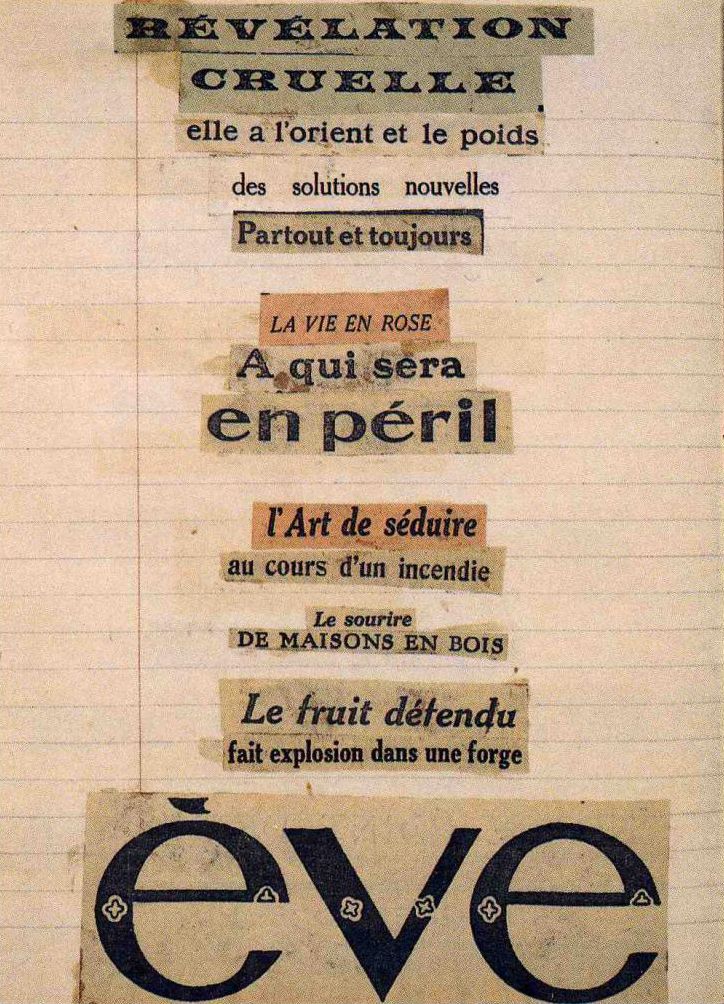 RÉVÉLATION
CRUELLE
elle a l'orient et le poids
des solutions nouvelles
Partout et toujours
LA VIE EN ROSE
A qui sera
en péril
l'Art de séduire
au cours d'un incendie
Le sourire
DE MAISONS EN BOIS
Le fruit défendu
fait explosion dans une forge
ève